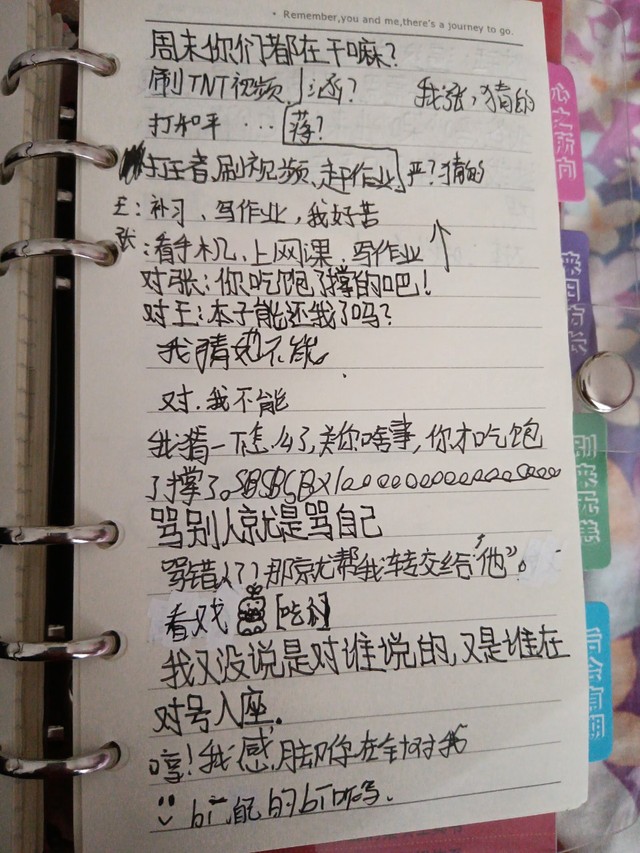 Remember,you and me,there's a journey to go.
周末你们都在干嘛？
刷TNT视频、涵？ 我张，猜的
打和平 … 蒋？
打王者、刷视频、赶作业 严？猜的
王：补习、写作业，我好苦
张：看手机、上网课、写作业
对张：你吃饱了撑的吧！
对王：本子能还我了吗？
我猜她不能
对.我不能
我猜一下怎么了，关你啥事，你才吃饱
了撑了。SBSBSBX1
骂别人就是骂自己
骂错人了？那就帮我转交给“他”。
看戏 [吃瓜]
我又没说是对谁说的，又是谁在
对号入座.
哼！我感，脚你在针对我
自己的
心之所向
来日方长
别来无恙
后会有期